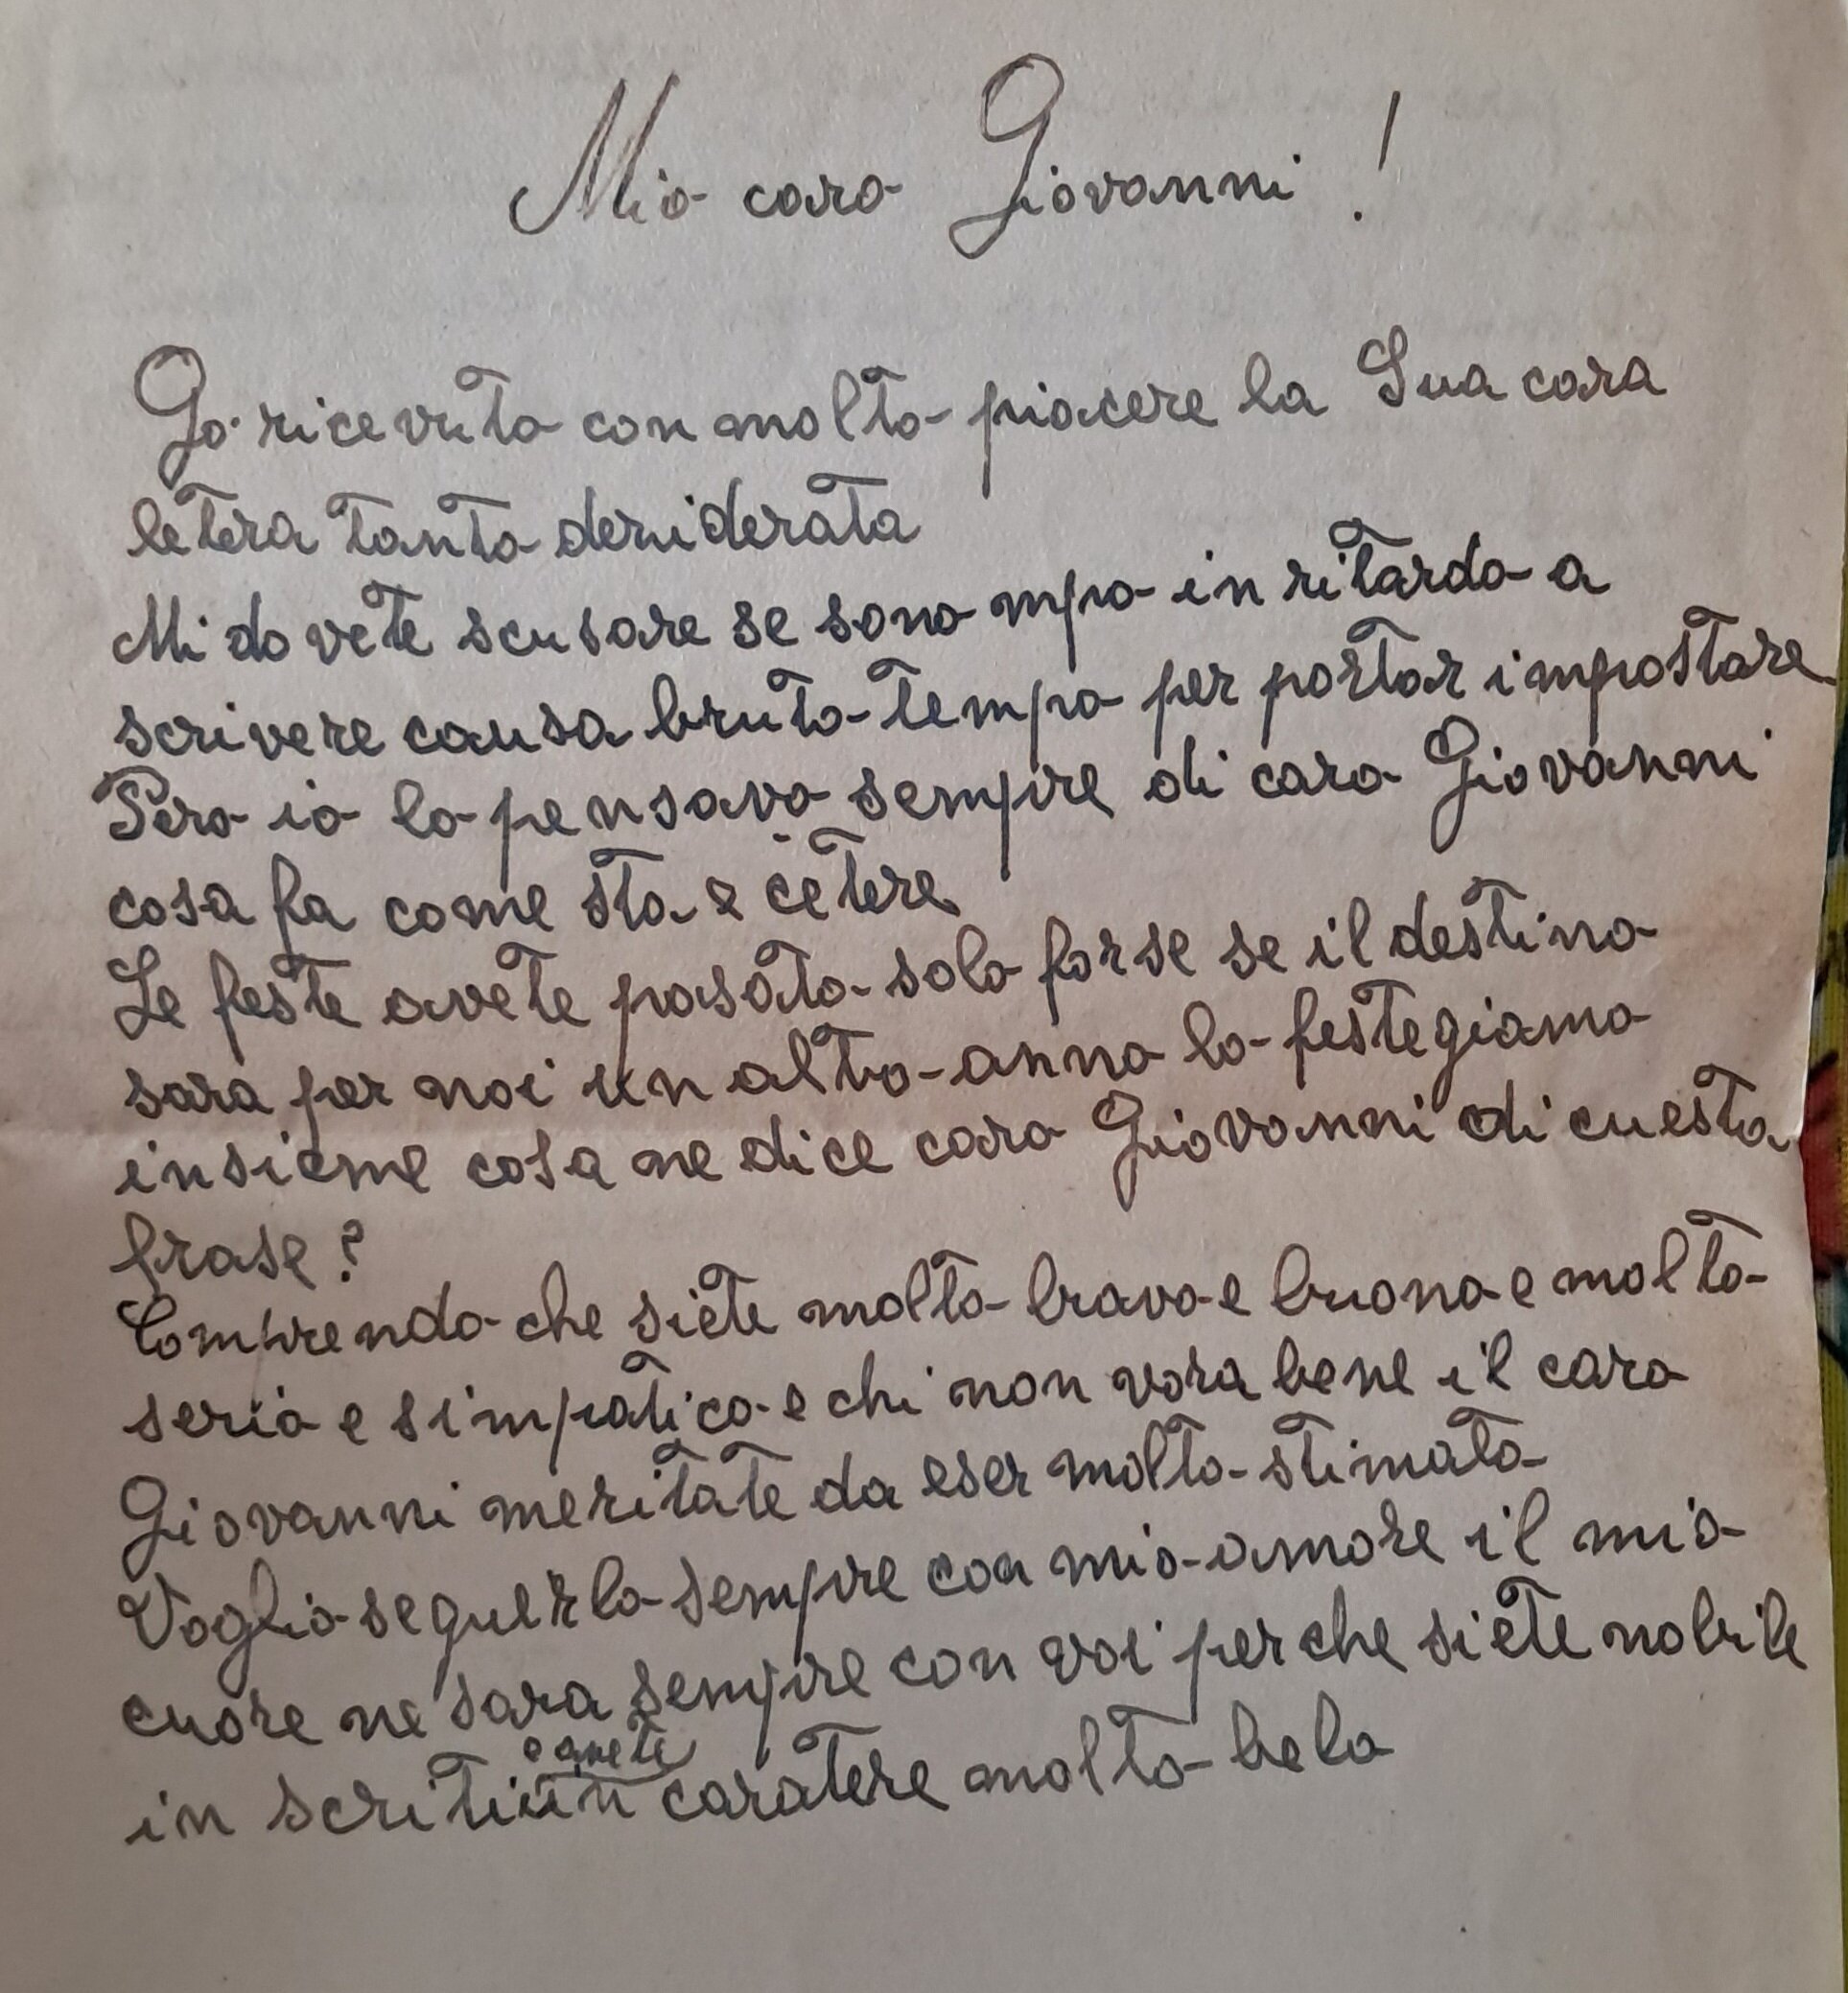 Mio caro Giovanni !
Go ricevuto con molto piacere la Sua cara
letera tanto desiderata
Mi dovete scusare se sono mpo in ritardo a
scrivere causa bruto tempo per portar impostare
Pero io lo pensavo sempre di caro Giovanni
cosa fa come sta e cetere
Le feste avete pasato solo forse se il destino
sara per noi un altro anno lo festegiamo
insieme cosa ne dice caro Giovanni di cuesta
frase?
Comprendo che siete molto bravo e buono e molto
serio e simpatico e chi non vora bene il caro
Giovanni meritate da eser molto stimato
Voglio seguerlo sempre con mio amore il mio
cuore ne sara sempre con voi perche siete nobile
in scriti un caratere molto belo